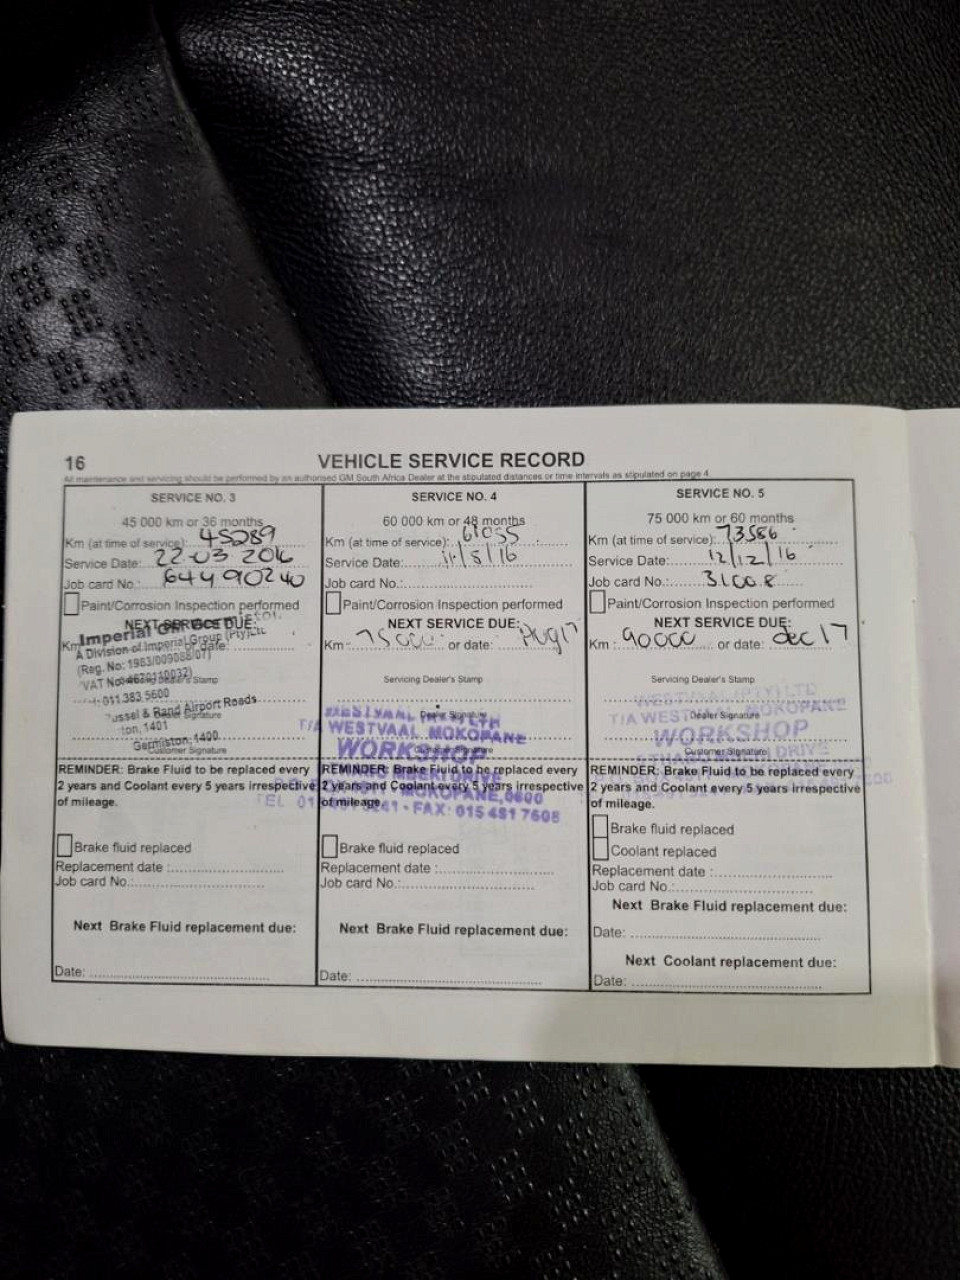 16
VEHICLE SERVICE RECORD
All maintenance and servicing should be performed by an authorised GM South Africa Dealer at the stipulated distances or time intervals as stipulated on page 4.
SERVICE NO. 3
45 000 km or 36 months
Km (at time of service): 45289
Service Date: 22-03 2016
Job card No.: 64490240
Paint/Corrosion Inspection performed
NEXT SERVICE DUE:
Km or date:
Imperial
A Division of Imperial Group (Pty) Ltd
(Reg. No: 1983/009088/07)
VAT No
Servicing Dealer's Stamp
011 383 5600
& Rand Airport Roads
Dealer Signature
1401
Germiston, 1400
Customer Signature
REMINDER: Brake Fluid to be replaced every
2 years and Coolant every 5 years irrespective
of mileage.
Brake fluid replaced
Replacement date :
Job card No.:
Next Brake Fluid replacement due:
Date:
SERVICE NO. 4
60 000 km or 48 months
Km (at time of service): 61055
Service Date: 11/8/16
Job card No.:
Paint/Corrosion Inspection performed
NEXT SERVICE DUE:
Km : 75000 or date: Aug 17
Servicing Dealer's Stamp
Dealer Signature
T/A WESTVAAL MOKOPANE
WORKSHOP
Customer Signature
REMINDER: Brake Fluid to be replaced every
2 years and Coolant every 5 years irrespective
MOKOPANE, 0600
of mileage.
FAX: 015 491 7608
Brake fluid replaced
Replacement date :
Job card No.:
Next Brake Fluid replacement due:
Date:
SERVICE NO. 5
75 000 km or 60 months
Km (at time of service): 73586
Service Date: 12/12/16
Job card No.: 31008
Paint/Corrosion Inspection performed
NEXT SERVICE DUE:
Km : 90000 or date: dec 17
Servicing Dealer's Stamp
WESTVAAL (PTY) LTD
Dealer Signature
T/A WESTVAAL MOKOPANE
WORKSHOP
Customer Signature
DRIVE
REMINDER: Brake Fluid to be replaced every
2 years and Coolant every 5 years irrespective
of mileage.
Brake fluid replaced
Coolant replaced
Replacement date :
Job card No.:
Next Brake Fluid replacement due:
Date:
Next Coolant replacement due:
Date: